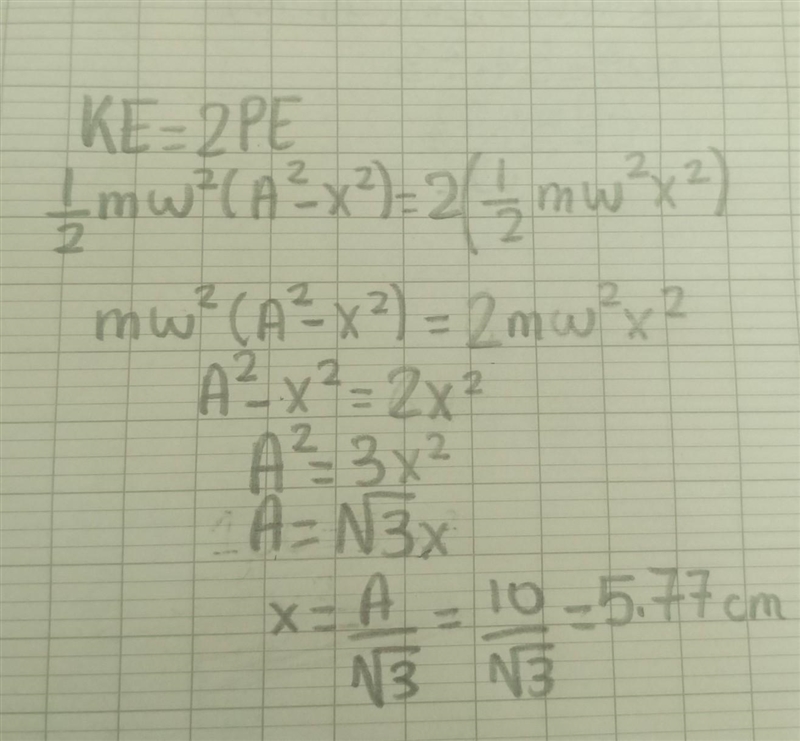 KE=2PE
1/2 mw²(A²-x²)=2(1/2 mw²x²)
mw²(A²-x²)=2mw²x²
A²-x²=2x²
A²=3x²
A=√3x
x=A/√3=10/√3=5.77cm